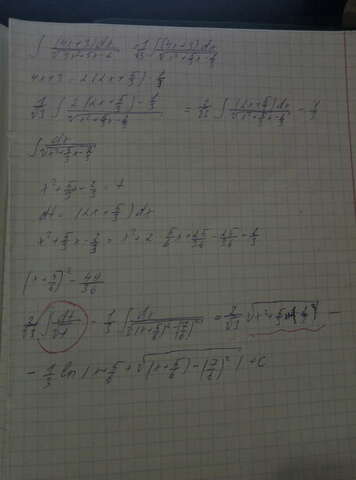 ∫ (4x+3)dx / √(3x²+5x-2) = 1/√3 ∫ (4x+3)dx / √(x²+5/3x-2/3)
4x+3 = 2(2x+5/3) - 1/3
1/√3 ∫ 2(2x+5/3) - 1/3 / √(x²+5/3x-2/3) = 2/√3 ∫ (2x+5/3)dx / √(x²+5/3x-2/3) - 1/3
∫ dx / √(x²+5/3x-2/3)
x²+5/3x-2/3 = t
dt = (2x+5/3)dx
x²+5/3x-2/3 = x²+2·5/6x+25/36-25/36-2/3
(x+5/6)²-49/36
2/√3 ∫ dt/√t - 1/3 ∫ dx / √((x+5/6)²-(7/6)²) = 2/√3 √(x²+5/3x -
- 1/3 ln |x+5/6+√((x+5/6)-(7/6)²)|+C